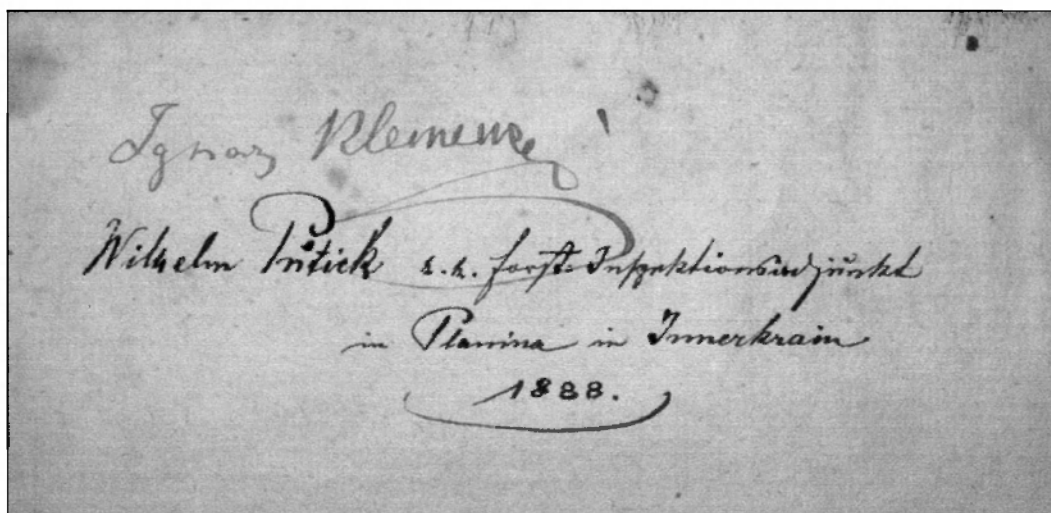 Ignaz Klemenc
Wilhelm Putick k. k. Forst-Inspektionsadjunkt
in Planina in Innerkrain
1888.